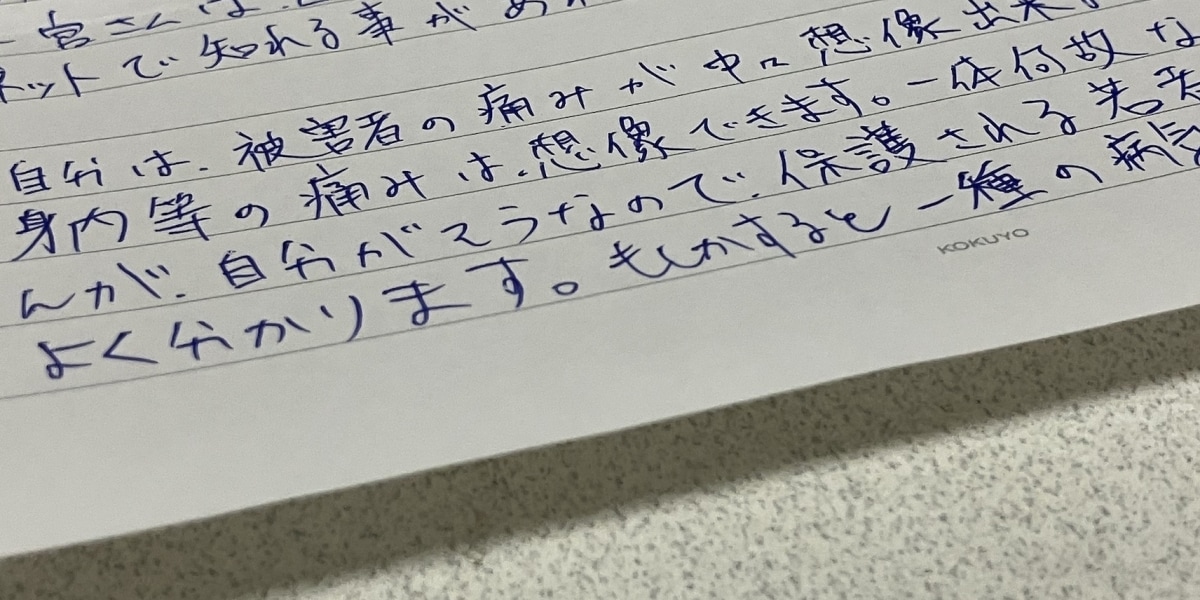 一宮さんは、
ネットで知れる事があ
自分は、被害者の痛みが中々想像出来
身内等の痛みは、想像できます。一体何故な
んが、自分がそうなので、保護される若者
よく分かります。もしかすると一種の病気
KOKUYO